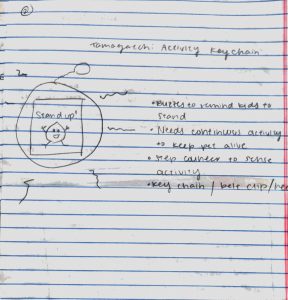 ②
Tamagatchi Activity Keychain
Stand up!
• Buzzes to remind kids to
stand
• Needs continuous activity
to keep pet alive
• Step counter to sense
activity
• Key chain / belt clip /